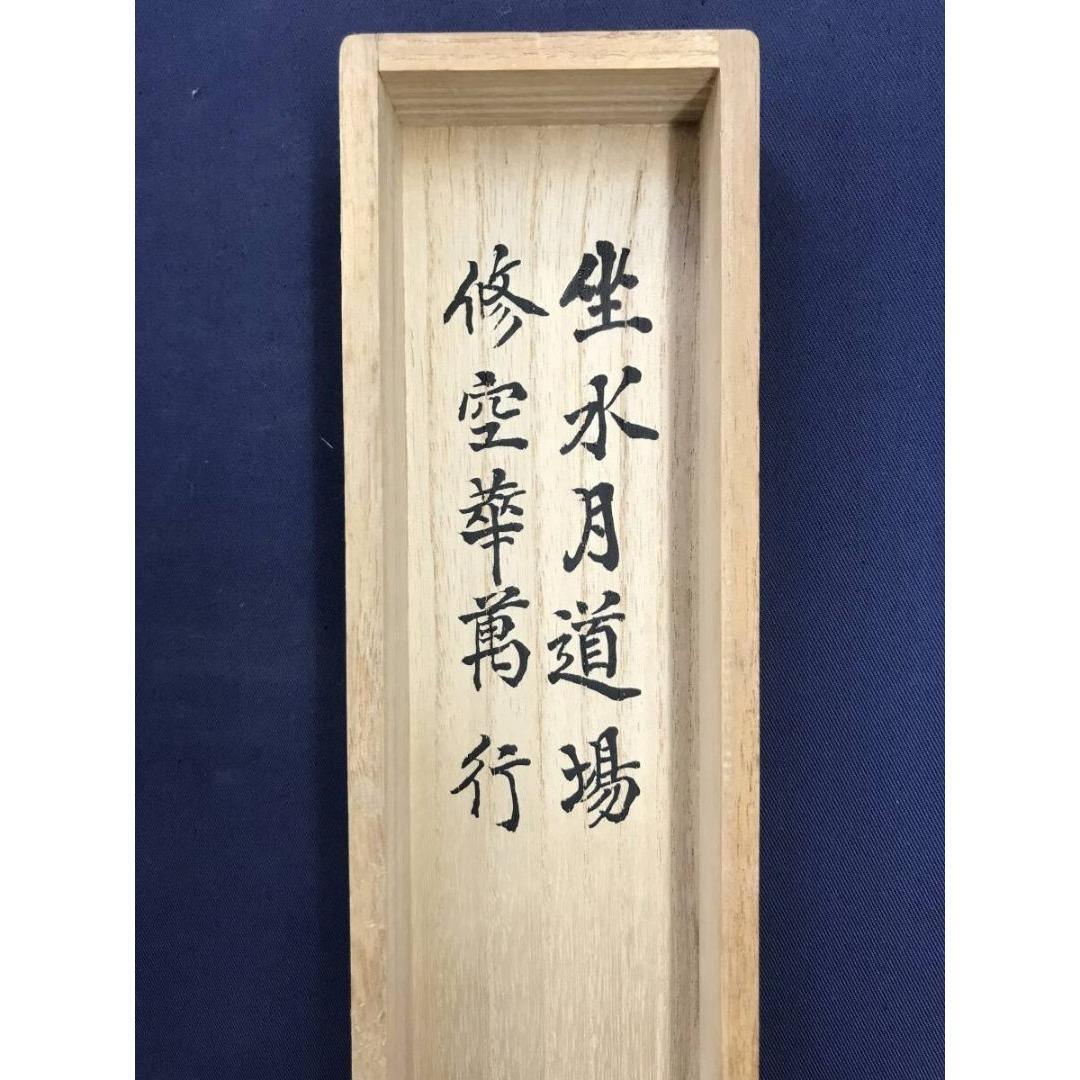 坐水月道場
修空華萬行